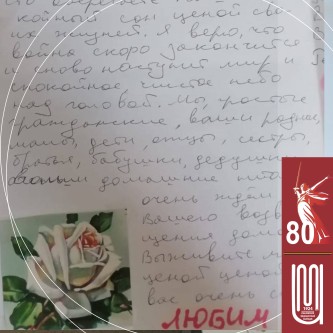 койный сон ценой сво
их жизней. Я верю, что
война скоро закончится
и снова наступит мир и
спокойное чистое небо
над головой. Мы, простые
гражданские, ваши родные,
мамы, дети, отцы, сёстры,
братья, бабушки, дедушки
домашние пита
очень ждём
вашего возвра
щения дом
Выживите
ценой ценой
вас очень
ЛЮБИМ
80
1924